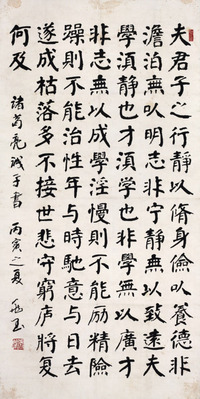 夫君子之行静以脩身儉以養德非
澹泊無以明志非寧静無以致遠夫
學須静也才須學也非學無以廣才
非志無以成學淫慢則不能勵精險
躁則不能治性年与時馳意与日去
遂成枯落多不接世悲守窮庐將复
何及 諸葛亮誡子書 丙寅之夏